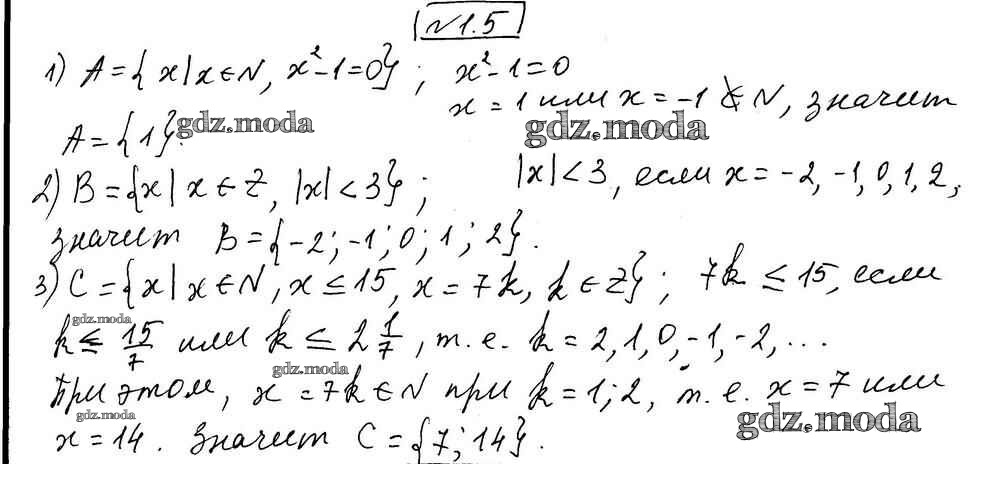 №1.5
1) A={x|x∈N, x²-1=0}; x²-1=0
x=1 или x=-1 ∉ N, значит
A={1}. gdz.moda gdz.moda
2) B={x|x∈Z, |x|<3}; |x|<3, если x=-2,-1,0,1,2,
значит B={-2;-1;0;1;2}.
3) C={x|x∈N, x≤15, x=7k, k∈Z}; 7k≤15, если
gdz.moda
k≤15/7 или k≤2 1/7, т.е. k=2,1,0,-1,-2,...
gdz.moda
При этом, x=7k∈N при k=1;2, т.е. x=7 или
gdz.moda gdz.moda
x=14. Значит C={7;14}.